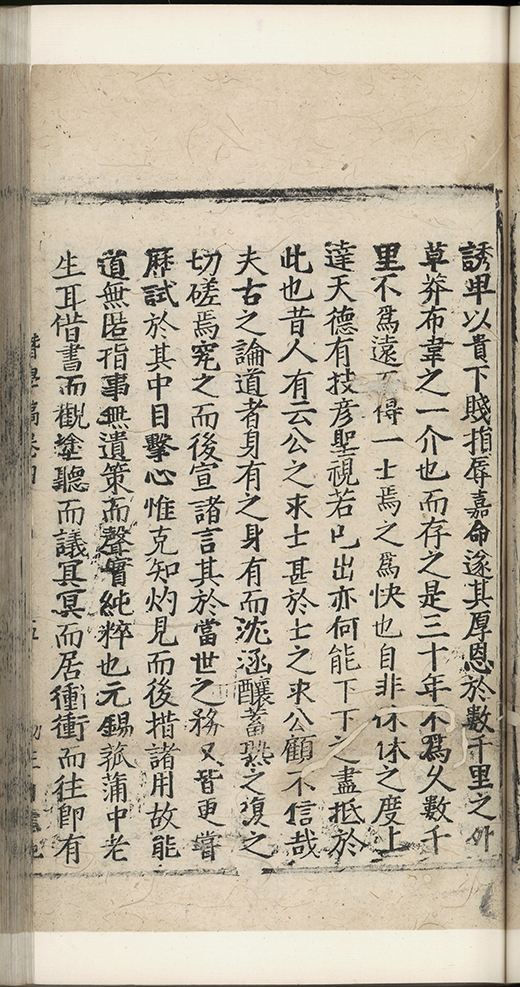 誘卑以貴下賤指辱嘉命遂其厚恩於數千里之外
草莽布韋之一介也而存之是三十年不爲久數千
里不爲遠 得一士焉之爲快也自非休休之度上
達天德有技彦聖視若已出亦何能下下之盡抵於
此也昔人有云公之求士甚於士之求公顧不信哉
夫古之論道者身有之身有而沈涵釀蓄熟之復之
切磋焉究之而後宣諸言其於當世之務又皆更嘗
歷試於其中目擊心惟克知灼見而後措諸用故能
道無匿指事無遺策而聲實純粹也元錫菰蒲中老
生耳借書而觀塗聽而議冥冥而居衝衝而往卽有
潛學稿卷四